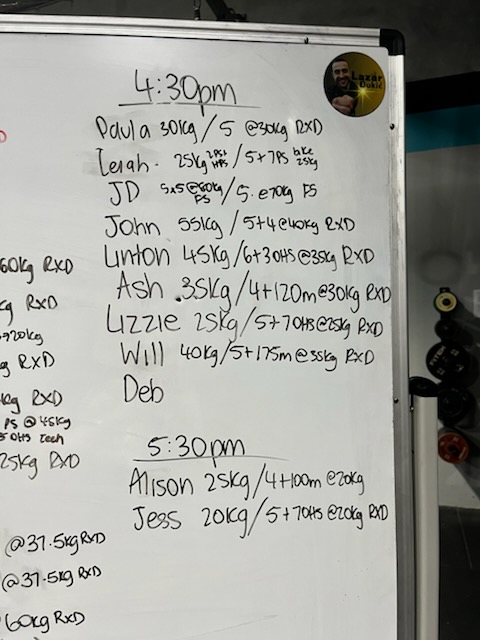 4:30pm
Paula 30kg / 5 @30kg RXD
25kg / 5+7PS bike 25kg
JD 5x5@60kg FS / 5. e70kg FS
John 55kg / 5+4@40kg RXD
Linton 45kg/6+30HS@35kg RXD
Ash .35kg/4+120m@30kg RXD
Lizzie 25kg/5+7OHS@25kg RXD
Will 40kg/5+175m@35kg RXD
Deb
5:30pm
Alison 25kg/4+100m @20kg
Jess 20kg/5+7OHS @20kg RXD
60kg RXD
kg RXD
RXD
kg RXD
PS @ 45kg
OHS tech
25kg RXD
@37.5kg RXD
@37.5kg RXD
60kg RXD
Lazar
Dukić